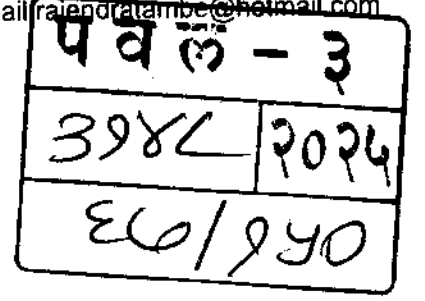 ail rajendratambe@hotmail.com
पवल - ३
३१४८ २०२५
६७/१५०